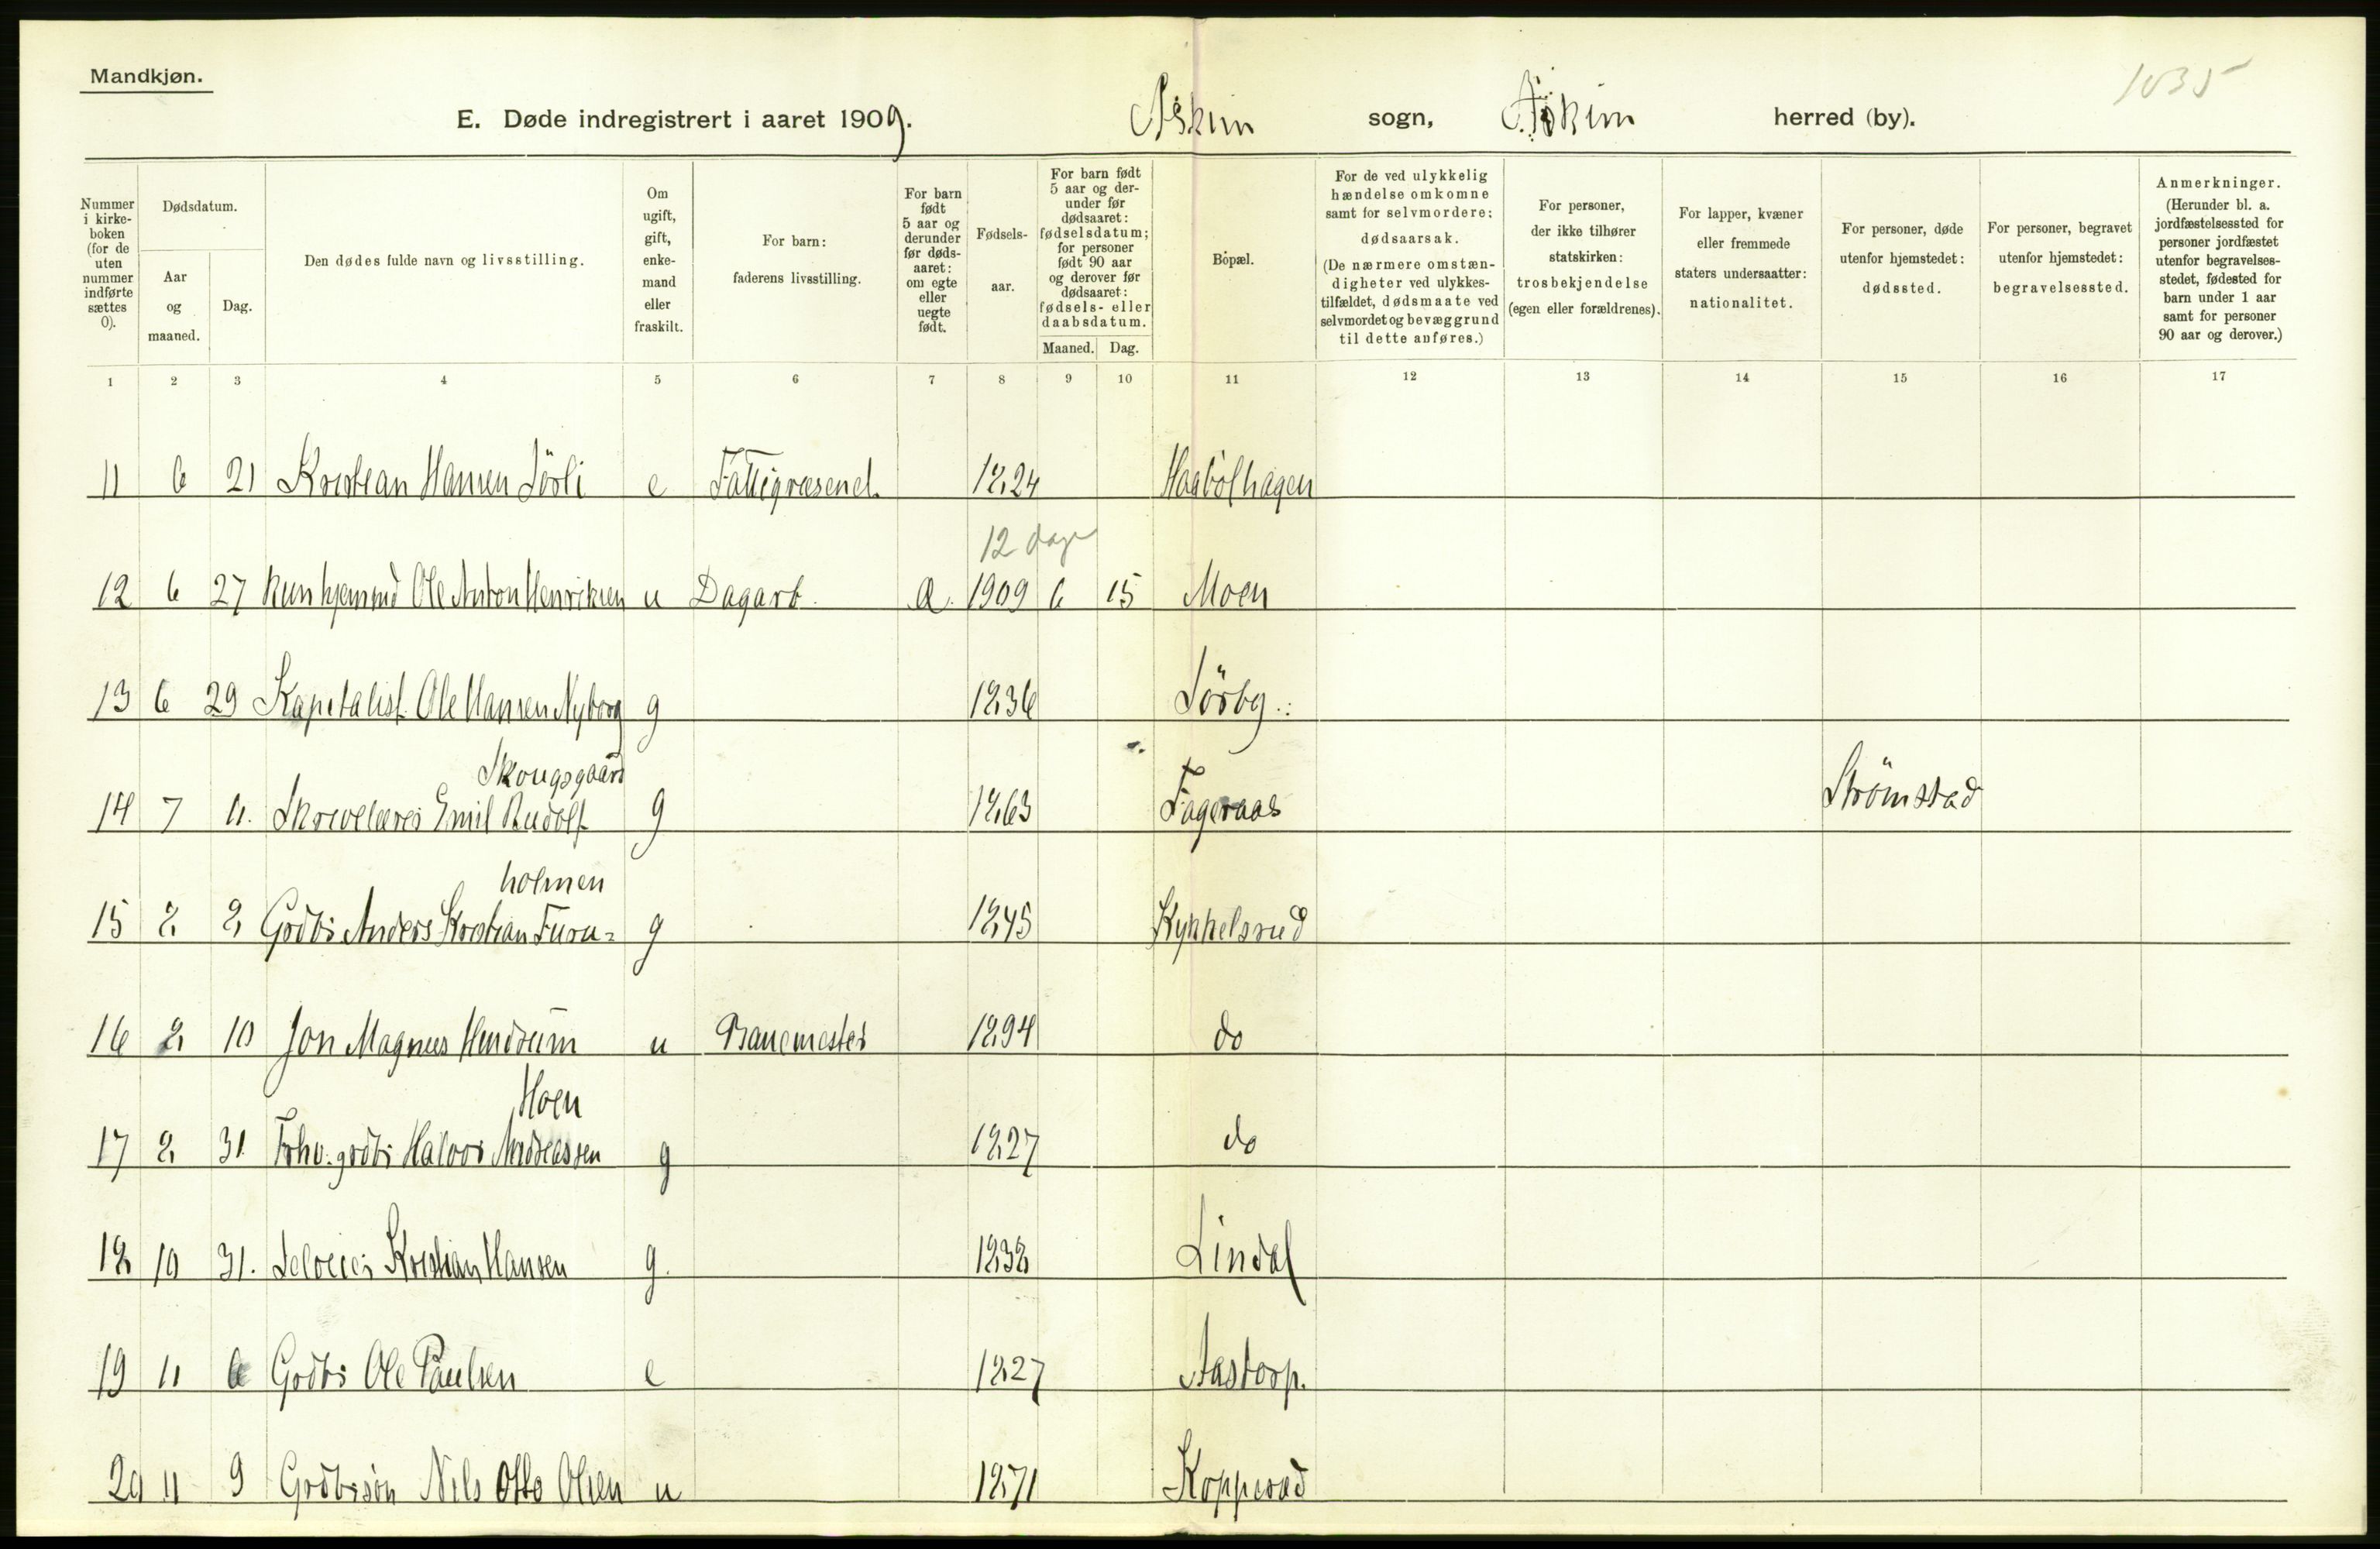 Mandkjøn.
1035
E. Døde indregistrert i aaret 1909. Askim sogn, Askim herred (by).
Nummer i kirke-boken (for de uten nummer indførte sættes 0).
Dødsdatum.
Aar og maaned.
Dag.
Den dødes fulde navn og livsstilling.
Om ugift, gift, enke-mand eller fraskilt.
For barn: faderens livsstilling.
For barn født 5 aar og derunder før døds-aaret: om egte eller uegte født.
Fødsels-aar.
For barn født 5 aar og der-under før dødsaaret: fødselsdatum; for personer født 90 aar og derover før dødsaaret: fødsels- eller daabsdatum.
Maaned. Dag.
Bopæl.
For de ved ulykkelig hændelse omkomne samt for selvmordere: dødsaarsak. (De nærmere omstæn-digheter ved ulykkes-tilfældet, dødsmaate ved selvmordet og bevæggrund til dette anføres.)
For personer, der ikke tilhører statskirken: trosbekjendelse (egen eller forældrenes).
For lapper, kvæner eller fremmede staters undersaatter: nationalitet.
For personer, døde utenfor hjemstedet: dødssted.
For personer, begravet utenfor hjemstedet: begravelsessted.
Anmerkninger. (Herunder bl. a. jordfæstelsessted for personer jordfæstet utenfor begravelses-stedet, fødested for barn under 1 aar samt for personer 90 aar og derover.)
1 2 3 4 5 6 7 8 9 10 11 12 13 14 15 16 17
11 6 21 Kristian Hansen Sörli e Fattigvæsenet. 1824 Haabölhagen
12 dage
12 6 27 Ole Anton Henriksen u Dagarb. 1909 6 15 Moen
13 6 29 Kapitalist Ole Hansen Nyborg g 1836 Sörby.
Skougsgaard
14 7 11. Emil Rudolf g 1863 Fageraas Strömstad
holmen
15 8 8 Grdbr Anders Kristian Furu= g 1845 Kykkelsrud
16 8 10 Jon Magnus Hendrum u Banemester 1894 do
Moen
17 8 31. Forhv. grdbr Halvor Andreassen g 1827 do
18 10 31. Selveier Kristian Hansen g. 1838 Lindal
19 11 6 Grdbr Ole Paulsen e 1827 Aastorp.
20 11 9 Grdbrsön Nils Otto Olsen u 1871 Kopperud